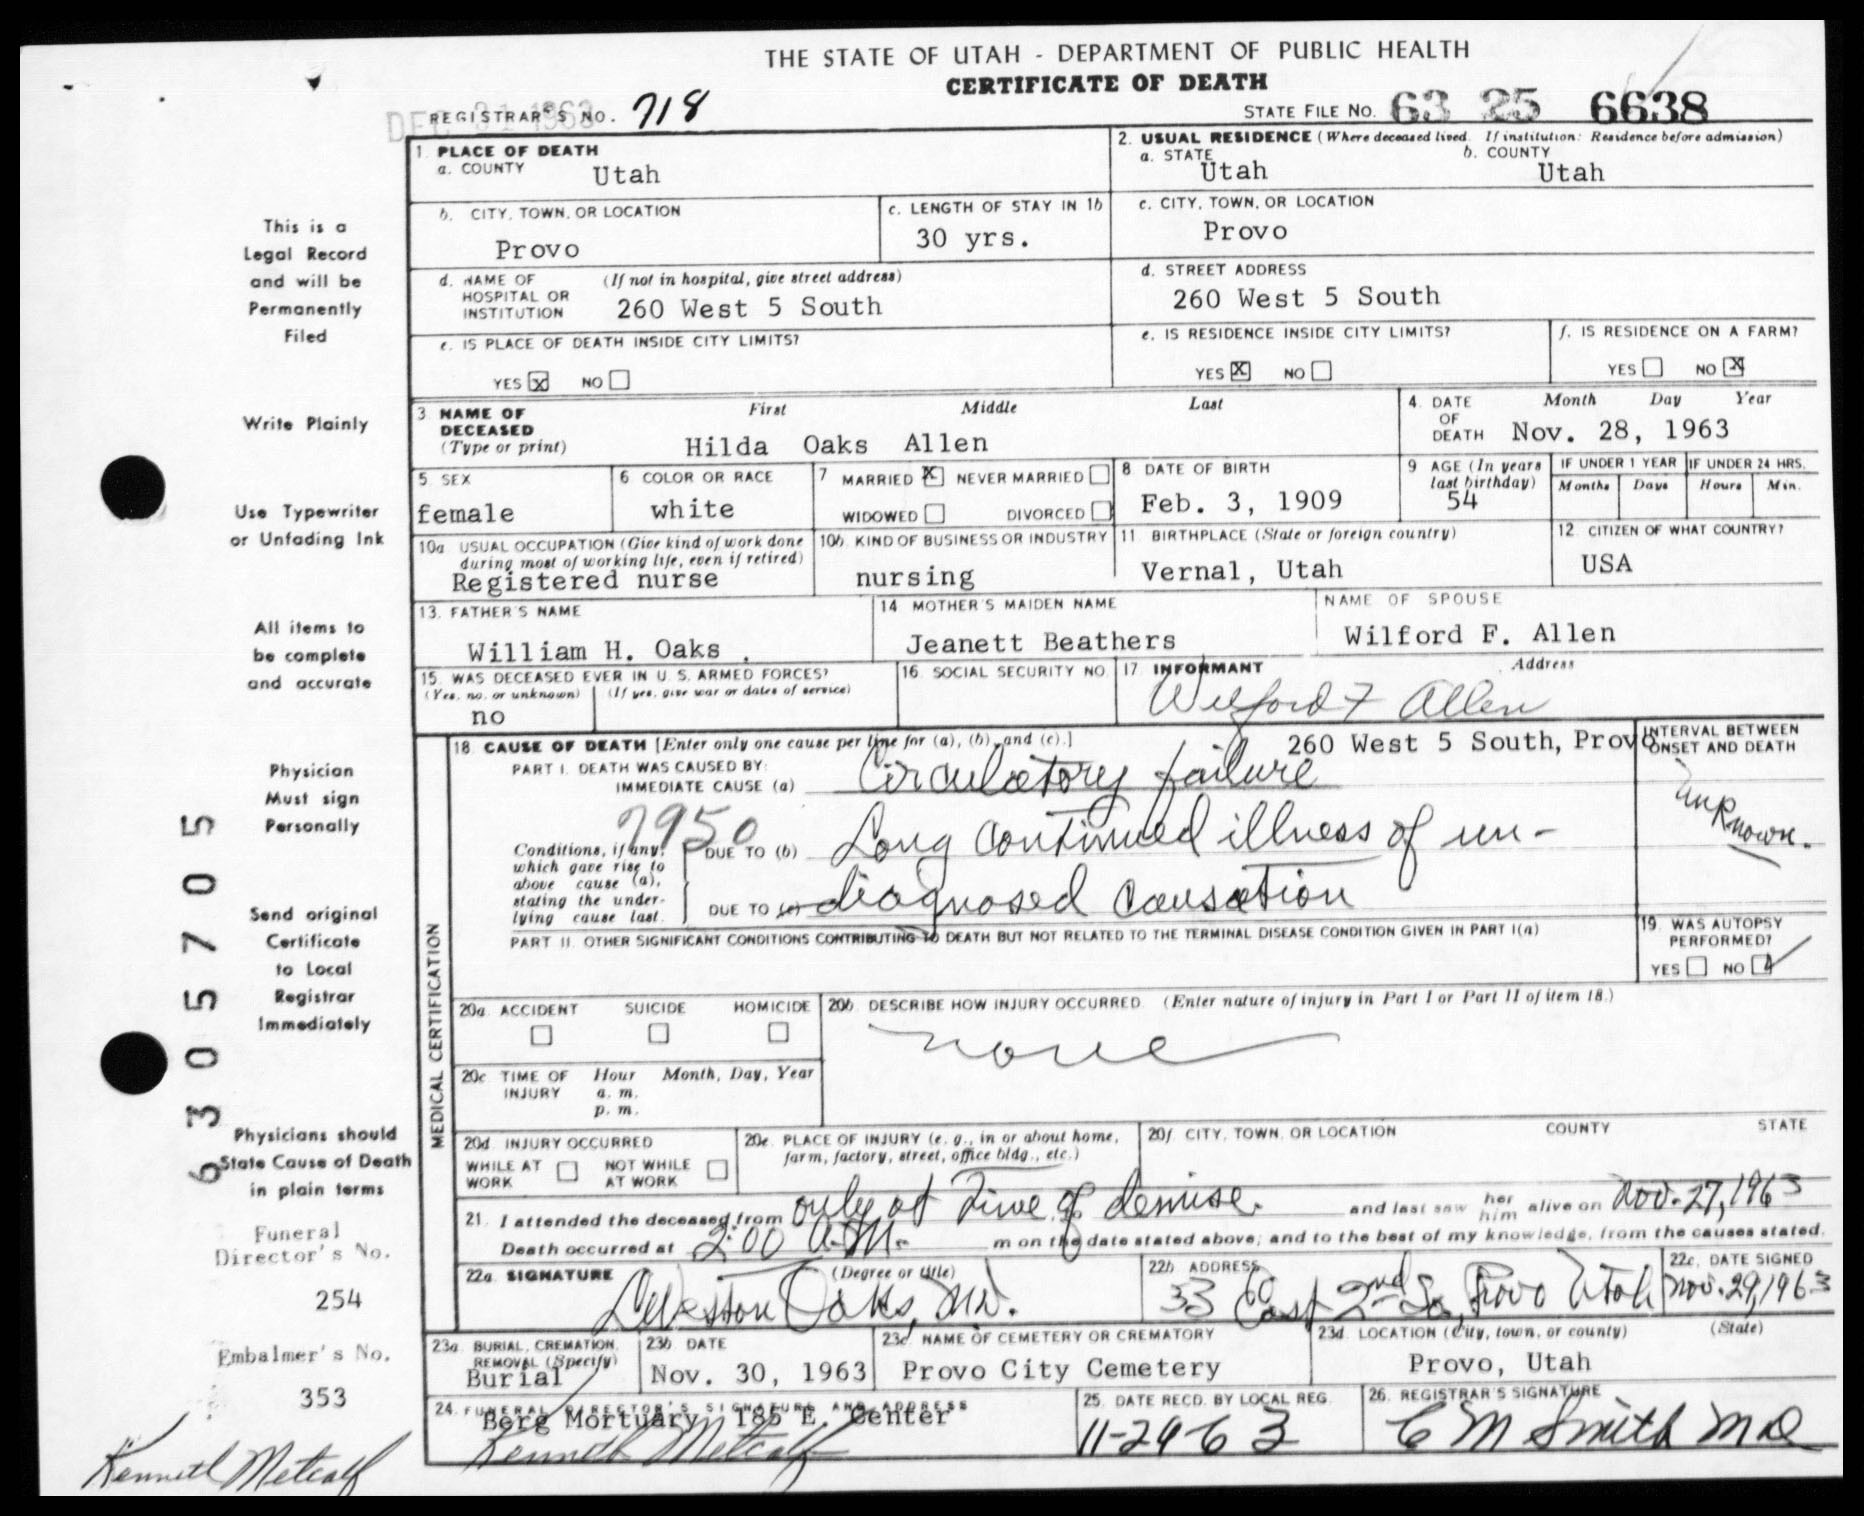 THE STATE OF UTAH - DEPARTMENT OF PUBLIC HEALTH
CERTIFICATE OF DEATH
DEC 31 1963
REGISTRAR'S NO. 718
STATE FILE NO. 63 25 6638
1. PLACE OF DEATH
a. COUNTY Utah
2. USUAL RESIDENCE (Where deceased lived. If institution: Residence before admission)
a. STATE Utah b. COUNTY Utah
b. CITY, TOWN, OR LOCATION Provo
c. LENGTH OF STAY IN 1b 30 yrs.
c. CITY, TOWN, OR LOCATION Provo
d. NAME OF HOSPITAL OR INSTITUTION (If not in hospital, give street address) 260 West 5 South
d. STREET ADDRESS 260 West 5 South
e. IS PLACE OF DEATH INSIDE CITY LIMITS? YES X NO
e. IS RESIDENCE INSIDE CITY LIMITS? YES X NO
f. IS RESIDENCE ON A FARM? YES NO X
3. NAME OF DECEASED (Type or print) First Middle Last
Hilda Oaks Allen
4. DATE OF DEATH Month Day Year
Nov. 28, 1963
5. SEX female
6 COLOR OR RACE white
7 MARRIED X NEVER MARRIED
WIDOWED DIVORCED
8 DATE OF BIRTH Feb. 3, 1909
9 AGE (In years last birthday) 54
IF UNDER 1 YEAR Months Days
IF UNDER 24 HRS. Hours Min.
10a USUAL OCCUPATION (Give kind of work done during most of working life, even if retired) Registered nurse
10b. KIND OF BUSINESS OR INDUSTRY nursing
11 BIRTHPLACE (State or foreign country) Vernal, Utah
12. CITIZEN OF WHAT COUNTRY? USA
13. FATHER'S NAME William H. Oaks
14 MOTHER'S MAIDEN NAME Jeanett Beathers
NAME OF SPOUSE Wilford F. Allen
15. WAS DECEASED EVER IN U. S. ARMED FORCES?
(Yes, no, or unknown) (If yes, give war or dates of service)
no
16. SOCIAL SECURITY NO.
17 INFORMANT Address
Wilford F Allen
260 West 5 South, Provo
MEDICAL CERTIFICATION
18. CAUSE OF DEATH [Enter only one cause per line for (a), (b), and (c).]
INTERVAL BETWEEN ONSET AND DEATH
PART I. DEATH WAS CAUSED BY:
IMMEDIATE CAUSE (a) Circulatory failure
unknown.
7950
Conditions, if any, which gave rise to above cause (a), stating the underlying cause last.
DUE TO (b) Long continued illness of un-
DUE TO (c) diagnosed causation
PART II. OTHER SIGNIFICANT CONDITIONS CONTRIBUTING TO DEATH BUT NOT RELATED TO THE TERMINAL DISEASE CONDITION GIVEN IN PART I(a)
19. WAS AUTOPSY PERFORMED?
YES NO
20a. ACCIDENT SUICIDE HOMICIDE
20b. DESCRIBE HOW INJURY OCCURRED. (Enter nature of injury in Part I or Part II of item 18.)
none
20c TIME OF INJURY Hour Month, Day, Year
a. m.
p. m.
20d. INJURY OCCURRED
WHILE AT WORK NOT WHILE AT WORK
20e. PLACE OF INJURY (e. g., in or about home, farm, factory, street, office bldg., etc.)
20f CITY, TOWN, OR LOCATION COUNTY STATE
21. I attended the deceased from only at time of demise. and last saw her him alive on Nov. 27, 1963
Death occurred at 2:00 A.M. m on the date stated above; and to the best of my knowledge, from the causes stated.
22a. SIGNATURE (Degree or title)
Oaks, MD.
22b ADDRESS 33 East 2nd So, Provo Utah
22c. DATE SIGNED Nov. 29, 1963
23a. BURIAL, CREMATION, REMOVAL (Specify) Burial
23b DATE Nov. 30, 1963
23c NAME OF CEMETERY OR CREMATORY Provo City Cemetery
23d. LOCATION (City, town, or county) (State)
Provo, Utah
24. FUNERAL DIRECTOR'S SIGNATURE AND ADDRESS
Berg Mortuary 185 E. Center
Kenneth Metcalf
25. DATE RECD. BY LOCAL REG.
11-29-63
26. REGISTRAR'S SIGNATURE
C M Smith MD
This is a
Legal Record
and will be
Permanently
Filed
Write Plainly
Use Typewriter
or Unfading Ink
All items to
be complete
and accurate
Physician
Must sign
Personally
Send original
Certificate
to Local
Registrar
Immediately
Physicians should
State Cause of Death
in plain terms
Funeral
Director's No.
254
Embalmer's No.
353
Kenneth Metcalf
6305705